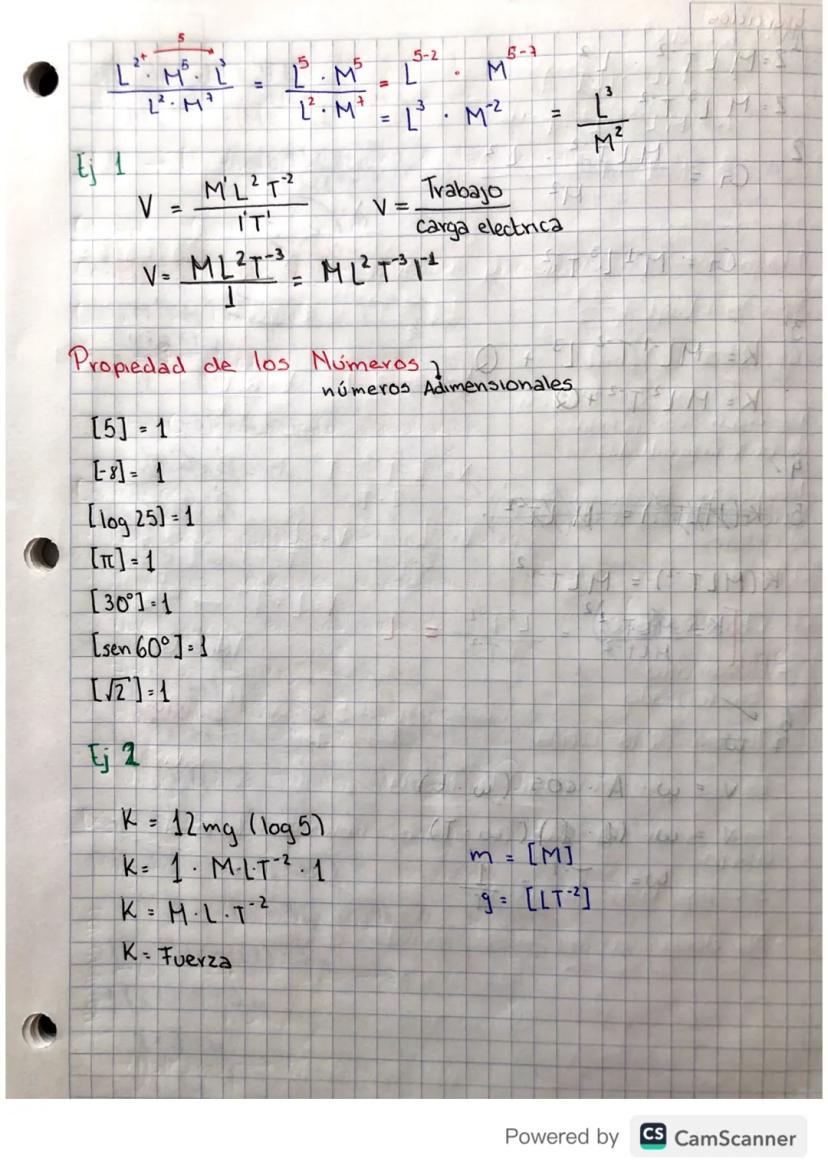 5
L²⁺ · M⁵ · L³ / L² · M⁷ = L⁵ · M⁵ / L² · M⁷ = L⁵⁻² · M⁵⁻⁷
= L³ · M⁻² = L³ / M²
Ej 1
V = M¹L²T⁻² / I¹T¹ V = Trabajo / carga electrica
V = ML²T⁻³ / I = ML²T⁻³I⁻¹
Propiedad de los Números
números Adimensionales
[5] = 1
[-8] = 1
[log 25] = 1
[π] = 1
[30°] = 1
[sen 60°] = 1
[√2] = 1
Ej 2
K = 12mg (log 5)
K = 1 · M·LT⁻² · 1 m = [M]
K = M·L·T⁻² g = [LT⁻²]
K = Fuerza
Powered by CS CamScanner